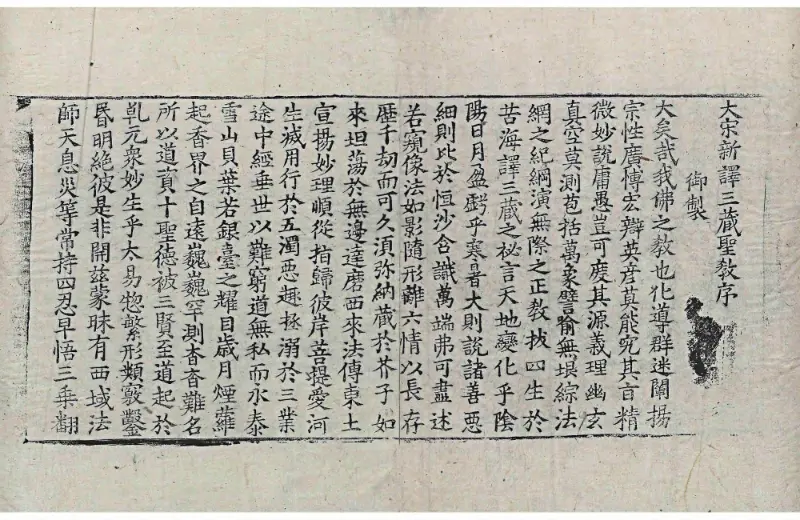 大宋新譯三藏聖教序
御製
大矣哉我佛之教也化導群迷闡揚
宗性廣博宏辯英彥莫能究其旨精
微妙說庸愚豈可度其源義理幽玄
真空莫測苞括萬象譬喻無垠綜法
網之紀綱演無際之正教拔四生於
苦海譯三藏之祕言天地變化乎陰
陽日月盈虧乎寒暑大則說諸善惡
細則比於恒沙含識萬端弗可盡述
若窺像法如影隨形離六情以長存
歷千劫而可久須弥納藏於芥子如
來坦蕩於無邊達磨西來法傳東土
宣揚妙理順從指歸彼岸菩提愛河
生滅用行於五濁惡趣拯溺於三業
途中經垂世以難窮道無私而永泰
雪山貝葉若銀臺之耀目歲月煙蘿
起香界之自遠巍巍罕測杳杳難名
所以道資十聖德被三賢至道起於
乹元衆妙生乎太易惣繁形類竅鑿
昏明絕彼是非開茲蒙昧有西域法
師天息災等常持四忍早悟三乘翻